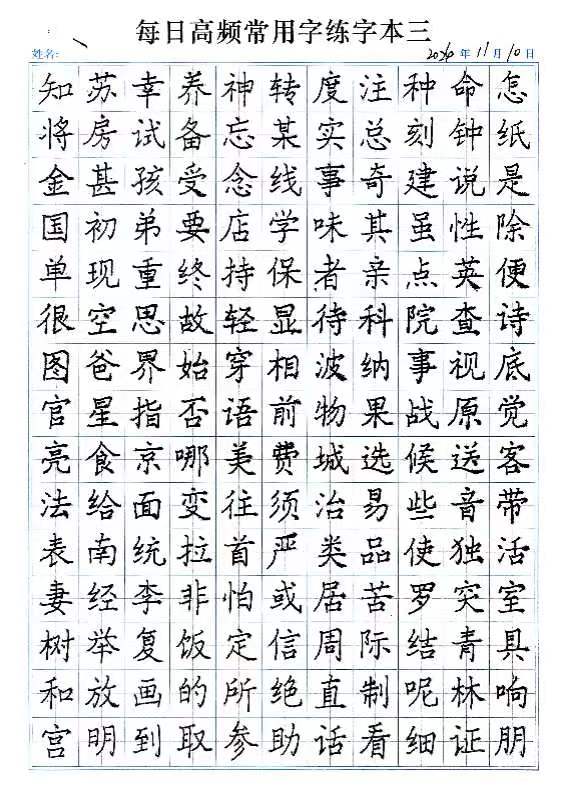 每日高频常用字练字本三
姓名: 2020年11月10日
知苏幸养神转度注种命怎
将房试备忘某实总刻钟纸
金甚孩受念线事奇建说是
国初弟要店学味其虽性除
单现重终持保者亲点英便
很空思故轻显待科院查诗
图爸界始穿相波纳事视底
官星指否语前物果战原觉
亮食京哪美费城选候送客
法给面变往须治易些音带
表南统拉首严类品使独活
妻经李非怕或居苦罗突室
树举复饭定信周际结青具
和放画的所绝直制呢林响
宫明到取参助话看细证朋